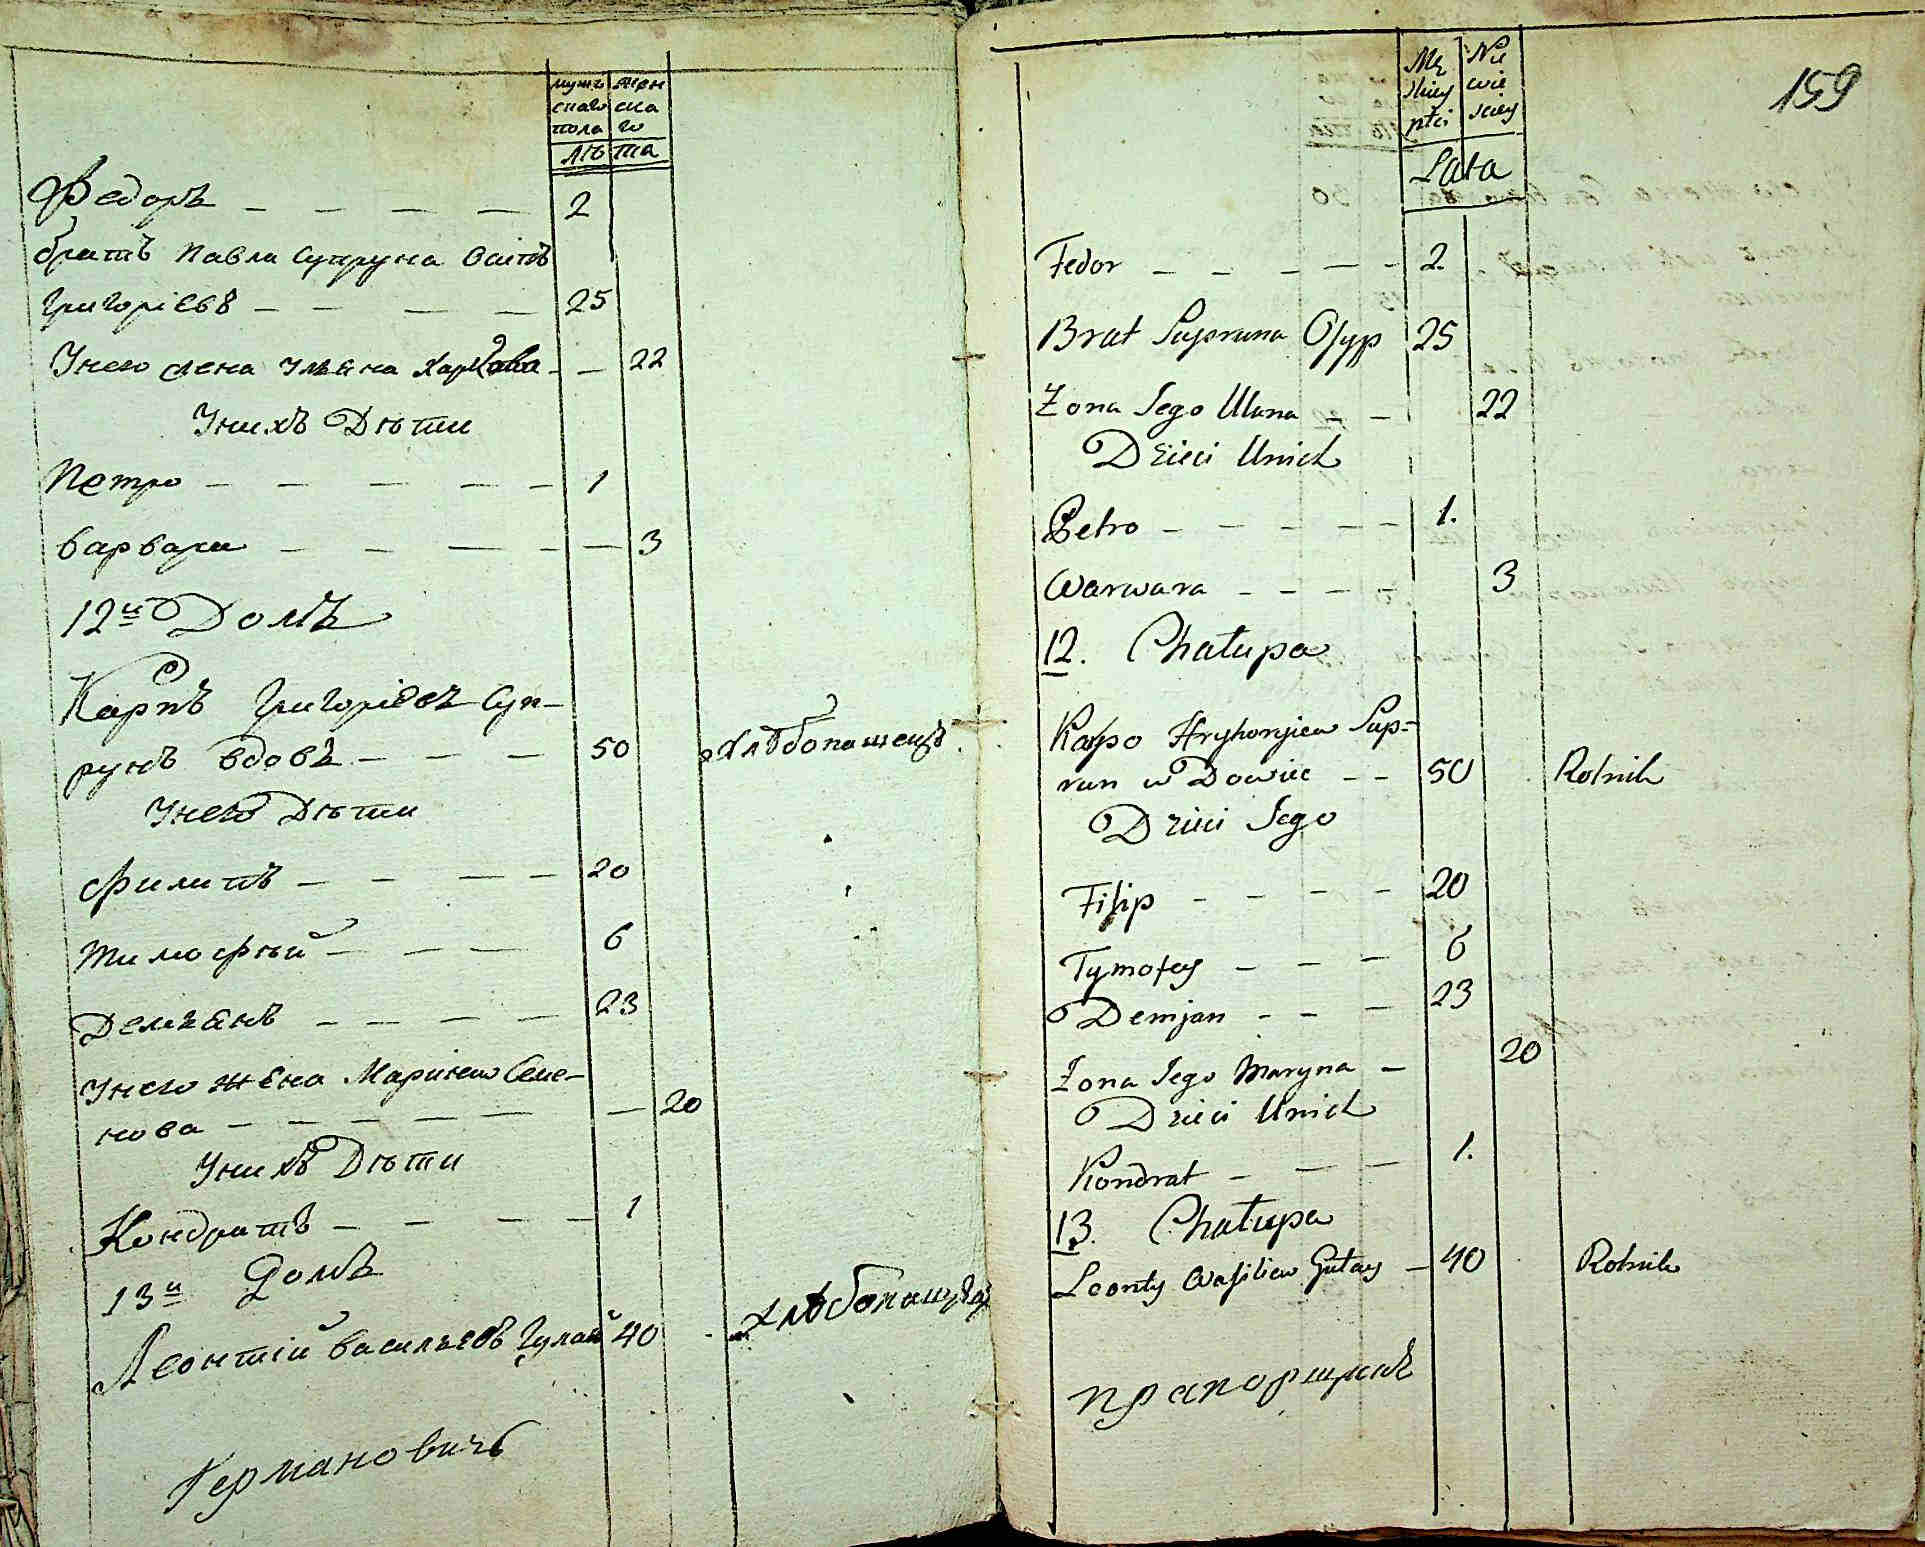 мужскаго пола
женскаго
лѣта
Федоръ — — — — 2
братъ Павла Супруна Осипъ
Григорієвъ — — — — 25
Унего жена Ульяна Карпова — — 22
Унихъ Дѣти
Петро — — — — — 1
Варвара — — — — — 3
12й Домъ
Карпъ Григорієвъ Суп-
рунъ вдовъ — — — 50 хлѣбопашецъ
Унего Дѣти
Филипъ — — — — 20
Тимофѣй — — — 6
Демьянъ — — — — 23
Унего жена Марина Семе-
нова — — — — — — 20
Унихъ Дѣти
Кондратъ — — — — 1
13й Домъ
Леонтій Васильевъ Гулай 40 хлѣбопашецъ
Германовичъ
159
Mę skiey płci
Nie wie sciey
Lata
Fedor — — — — — 2.
Brat Supruna Osyp 25
Żona Jego Ulana — — 22
Dzieci Unich
Petro — — — — — 1.
Warwara — — — — 3
12. Chałupa
Karpo Hryhoryiew Sup-
run w Dowiec — — 50 Rolnik
Dzieci Jego
Filip — — — — 20
Tymofey — — — 6
Demjan — — — 23
Żona Jego Maryna — 20
Dzieci Unich
Kondrat — — — 1.
13. Chałupa
Leonty Wasiliew Gułay — 40 Rolnik
прапорщикъ